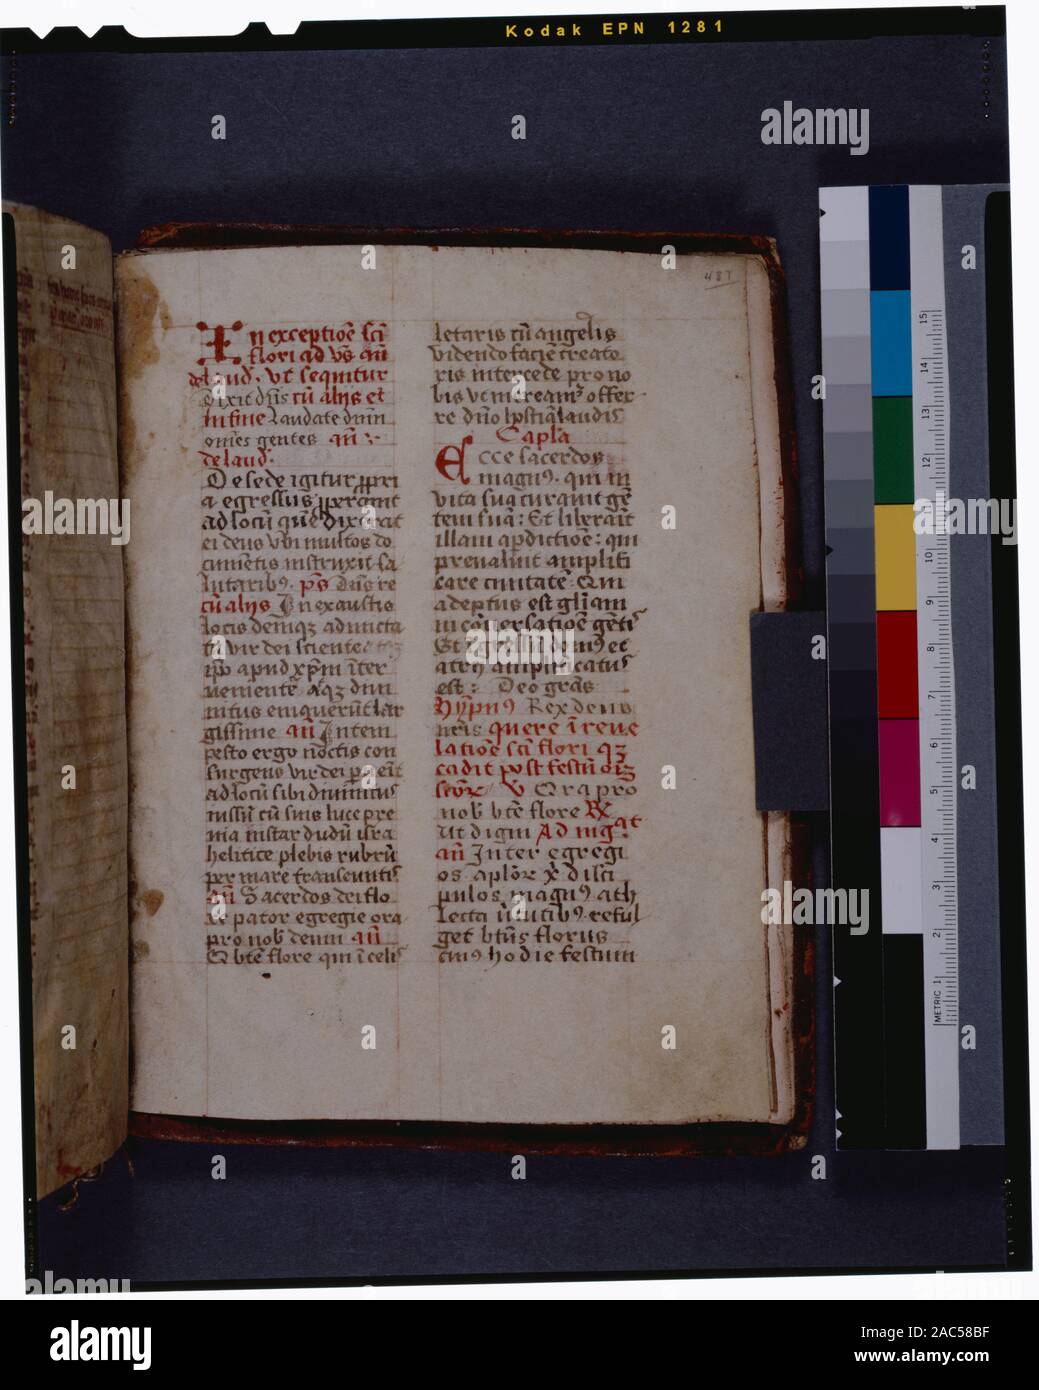 Kodak EPN 1281
alamy
487
In exceptiōe sc̄i
flori ad vs̄ an̄
de laud. vt sequitur
dixit dn̄s cū alijs et
in fine Laudate dnm
omēs gentes an̄
de laud.
De sede igitur
a egressus
ad locū quē dixerat
ei deus vbi multos do
cumētis instruxit sa
lutaribꝰ. pš Dn̄s re
cū alijs In exaustis
locis deniqꝫ ad
vir dei
ip̄o apud xp̄m īter
uenientē Aqꝫ diui
nitus emiquerūt lar
gissime an̄ Intem
pesto ergo noctis con
surgens vir dei
ad locū sibi diuinitus
iussū cū suis luce pre
uia instar dudū isra
helitice plebis rubrū
per mare transeuntis
an̄ Sacerdos dei flo
re pator egregie ora
pro nob̄ deum an̄
O btē flore qui ī celis
letaris cū angelis
videndo faciē creato
ris intercede pro no
bis vt mereamꝰ offer
re dn̄o laudis
Capl̄a
Ecce sacerdos
magnꝰ. qui in
vita sua curauit gē
tem suā: Et liberaūt
illam a pdictiōe: qui
preualuit amplifi
care ciuitatē Qui
adeptus est gl̄iam
in cōuersatiōe gētis
Et īgressū domꝰ et
atrij amplificatus
est: Deo gr̄as
Hȳpnꝰ Rex deus
quere ī reue
latiōe sc̄i flori qꝫ
cadit post festū
V Ora pro
nob̄ btē flore R̄
Ut digni Ad maḡat
an̄ Inter egregi
os apl̄or x̄ disci
pulos magnꝰ ath
lecta v̄tutibꝰ reful
get bt̄us florus
cuiꝰ hodie festum
METRIC 1
2
3
4
5
6
7
8
9
10
11
12
13
14
15
alamy
Image ID: 2AC58BF
www.alamy.com